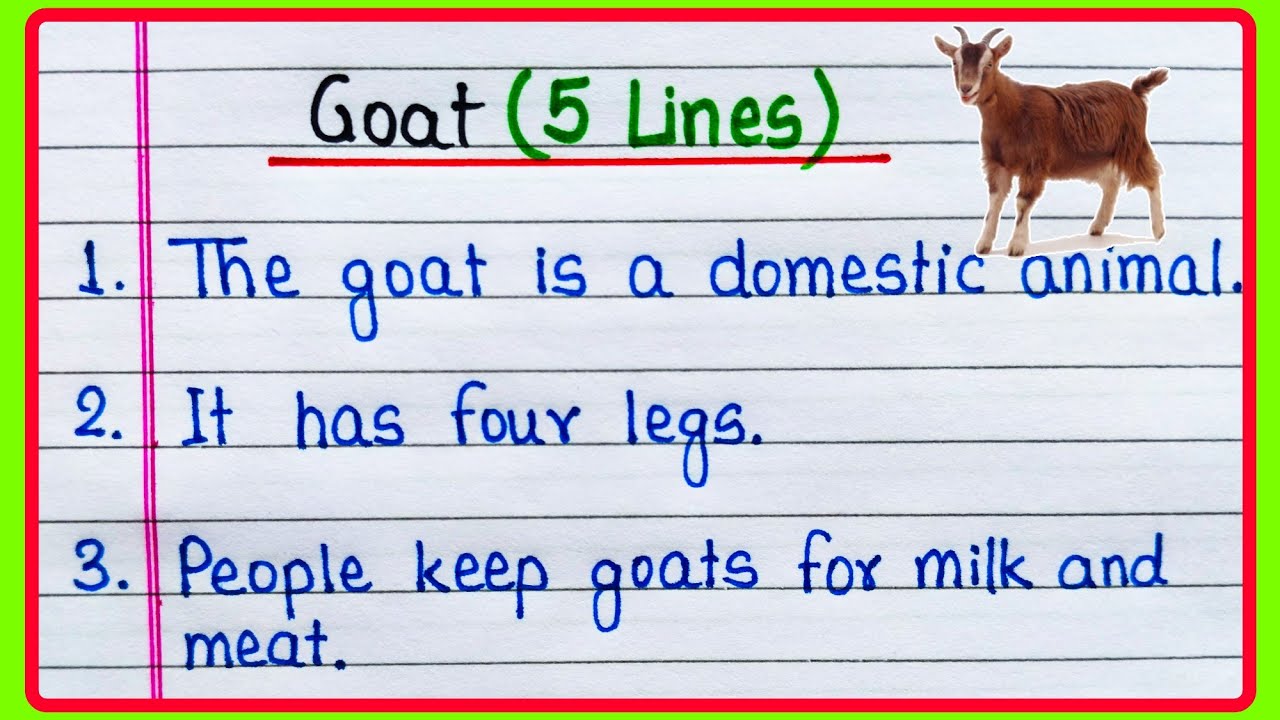 Goat (5 Lines)
1. The goat is a domestic animal.
2. It has four legs.
3. People keep goats for milk and
meat.